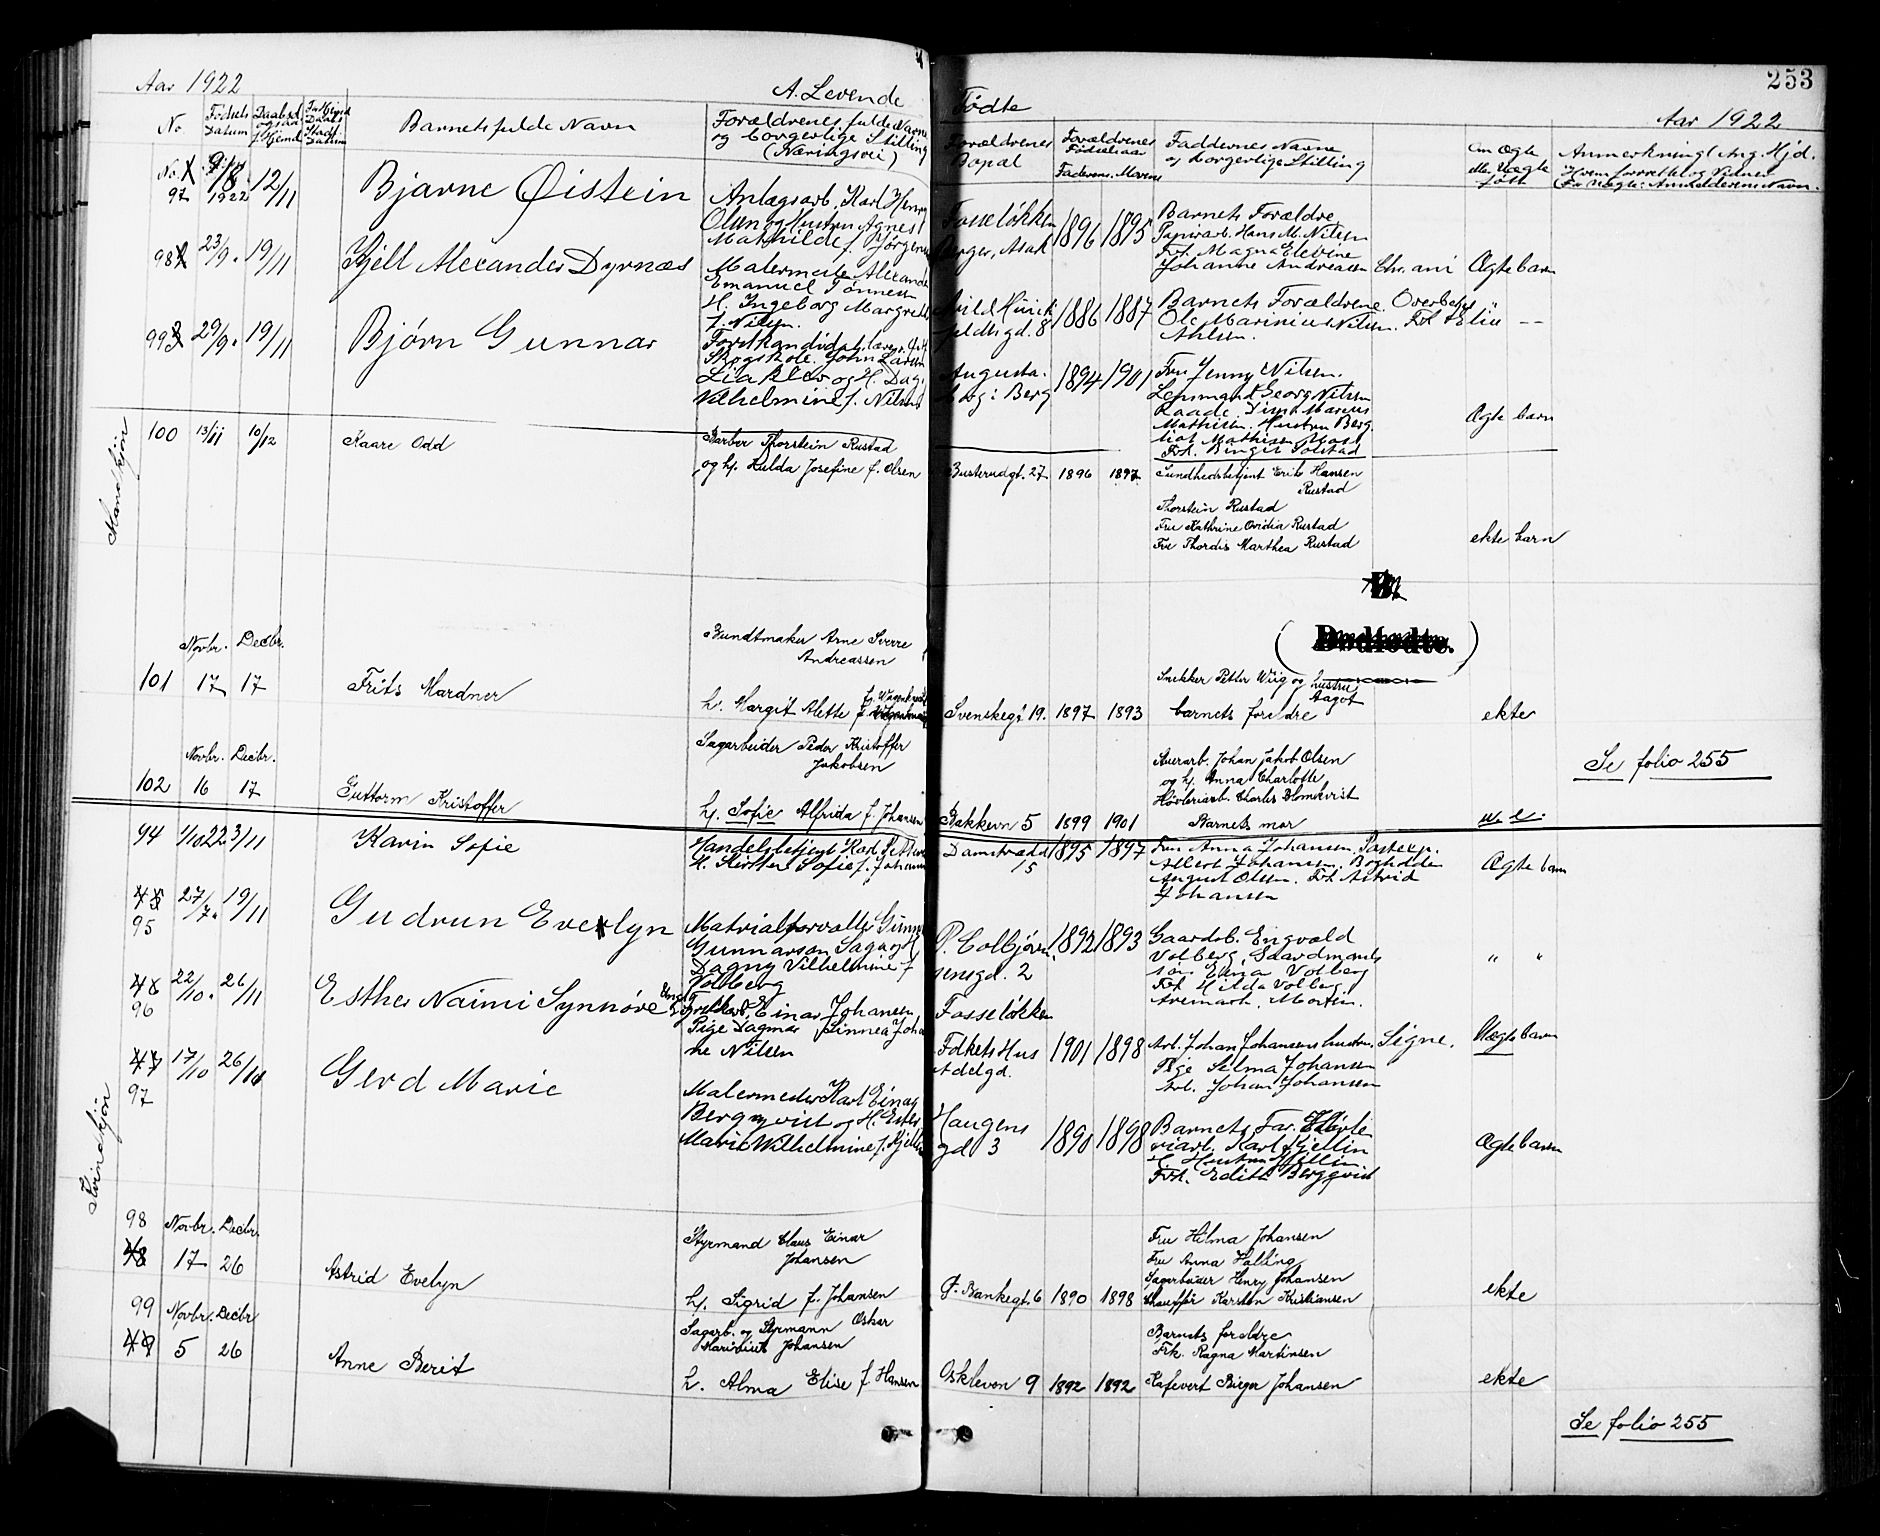 253
Aar 1922
A. Levende
Fødte
Aar 1922
No.
Fødsels Datum
Barnets fulde Navn
Forældrenes fulde Navne
og borgerlige Stilling
(Næringsvei)
Forældrenes
Bopæl
Forældrenes
Fødselsaar
Faderens. Morens
Faddernes Navne
og borgerlige Stilling
Om Ægte
eller Uægte
født
Mandkjøn
97
1922
12/11
Bjarne Øistein
Anlægsarb. Karl Henry
Olsen og Hustru Agnes
Mathilde f. Jörgens
Fosseløkken
Berger, Asak
1896 1895
Barnets Forældre
Papirarb. Hans M. Nilsen
Frk. Magna Elevine
Johanne Andreasen Chr.ani
Ægte barn
98
23/9. 19/11
Kjell Alexander Dyrnæs
Malermester Alexander
Emanuel Tønnesen
H. Ingeborg Margrethe
f. Nilsen.
gd. 8
1886 1887
Barnets Forældrene Overbetj.
Ole Marinius Nilsen. Frk Elise
Ahlsen.
99
29/9. 19/11
Bjørn Gunnar
Forstkandidat,
Skogskole. John Larsen
Liaklev og H. Dag.
Vilhelmine f. Nilsen
Augusta-
borg i Berg
1894 1901
Fru Jenny Nilsen.
Lensmand Georg Nilsen
Raade. Marius
Mathisen. Hustru Berg.
liot Mathisen Moss
Frk. Birgit Solstad
Ægte barn
100
13/11 10/12
Kaare Odd
Barber Thorstein Rustad
og h. Hulda Josefine f. Olsen
Busterudgt. 27
1896 1897
Sundhedsbetjent Erik Hansen
Rustad
Thorstein Rustad
Fru Kathrine Ovidia Rustad
Fru Thordis Marthea Rustad
ekte barn
B.
(Dødfødte.)
Novbr. Decbr.
101
17 17
Frits Mardner
Bundtmaker Arne Sverre
Andreassen
h. Margit Alette
Svenskegt 19.
1897 1893
Snekker Petter Wiig og hustru
Aagot
barnets foreldre
ekte
Novbr. Decbr.
102
16 17
Guttorm Kristoffer
Sagarbeider Peder Kristoffer
Jakobsen
h. Sofie Alfrida f. Johansen
Bakkevn 5
1899 1901
Murarb. Johan Jakob Olsen
og h. Anna Charlotte
Høvleriarb. Charles Blomkvist
Barnets mor
Se folio 255
Kvindekjøn
94
1/10 22 3/11
Karin Sofie
Handelsbetjent Karl
H. Kirsten Sofie f. Johansen
Damstrædd
/5
1895 1897
Fru Anna Johansen, Postexp.
Albert Johansen, Bogholder
August Olsen. Frk Astrid
Johansen
Ægte barn
95
27/7. 19/11
Gudrun Evelyn
Matrialforvalter Gunnar
Gunnarson Saga og H.
Dagny Vilhelmine f
Volberg
P. Colbjørn.
sensgd. 2
1892 1893
Gaardsb. Engvald
Volberg, Gaardmands
søn Einar Volberg
Frk Hilda Volberg
Aremark, Morten.
" "
96
22/10. 26/11
Esther Naimi Synnøve
Einar Johansen,
Pige Dagmar Linnea Joha
ne Nilsen
Fosseløkken
Folkets Hus
Adelgd.
1901 1898
Arb. Johan Johansens hustru, Signe.
Pige Selma Johansen
Arb. Johan Johansen
Uægte barn
97
17/10 26/11
Gerd Marie
Malermester Karl Einar
Bergqvist og H. Ester
Marie Wilhelmine f. Kjellin
Haugens
gd 3
1890 1898
Barnets Far. Høvle
riarb. Karl Kjellin
H. Hustru Kjellin
Frk. Edith Bergqvist
Ægte barn
98
Novbr. Decbr.
17 26
Astrid Evelyn
Styrmand Claus Einar
Johansen
h. Sigrid f. Johansen
P. Bankegt. 6
1890 1898
Fru Hilma Johansen
Fru Anna Halling
Sagarbeider Henry Johansen
Chauffør Karsten Kristiansen
ekte
99
Novbr. Decbr
5 26
Anne Berit
Sagarb. og Styrmann Oskar
Marinius Johansen
h. Alma Elise f Hansen
Osklevon 9
1892 1892
Barnets foreldre
Frk. Ragna Martinsen
Kafevert Birger Johansen
ekte
Se folio 255